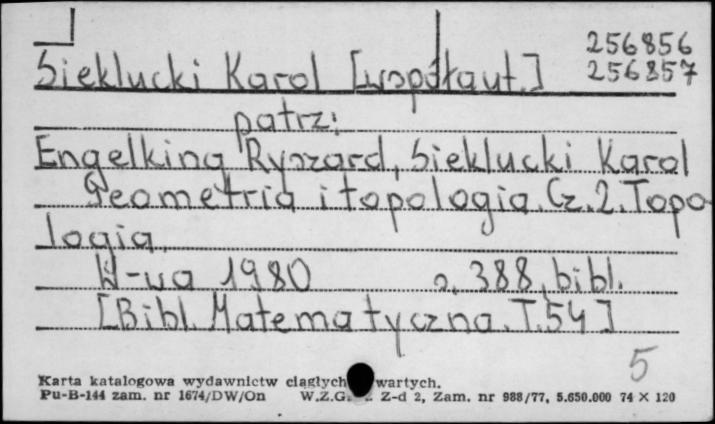 256856
Sieklucki Karol [współaut.] 256857
patrz:
Engelking Ryszard, Sieklucki Karol
Geometria i topologia. Cz. 2. Topo-
logia.
W-wa 1980 s. 388, bibl.
[Bibl. Matematyczna. T. 54]
5
Karta katalogowa wydawnictw ciągłych wartych.
Pu-B-144 zam. nr 1674/DW/On W.Z.G. Z-d 2, Zam. nr 988/77, 5.650.000 74 × 120